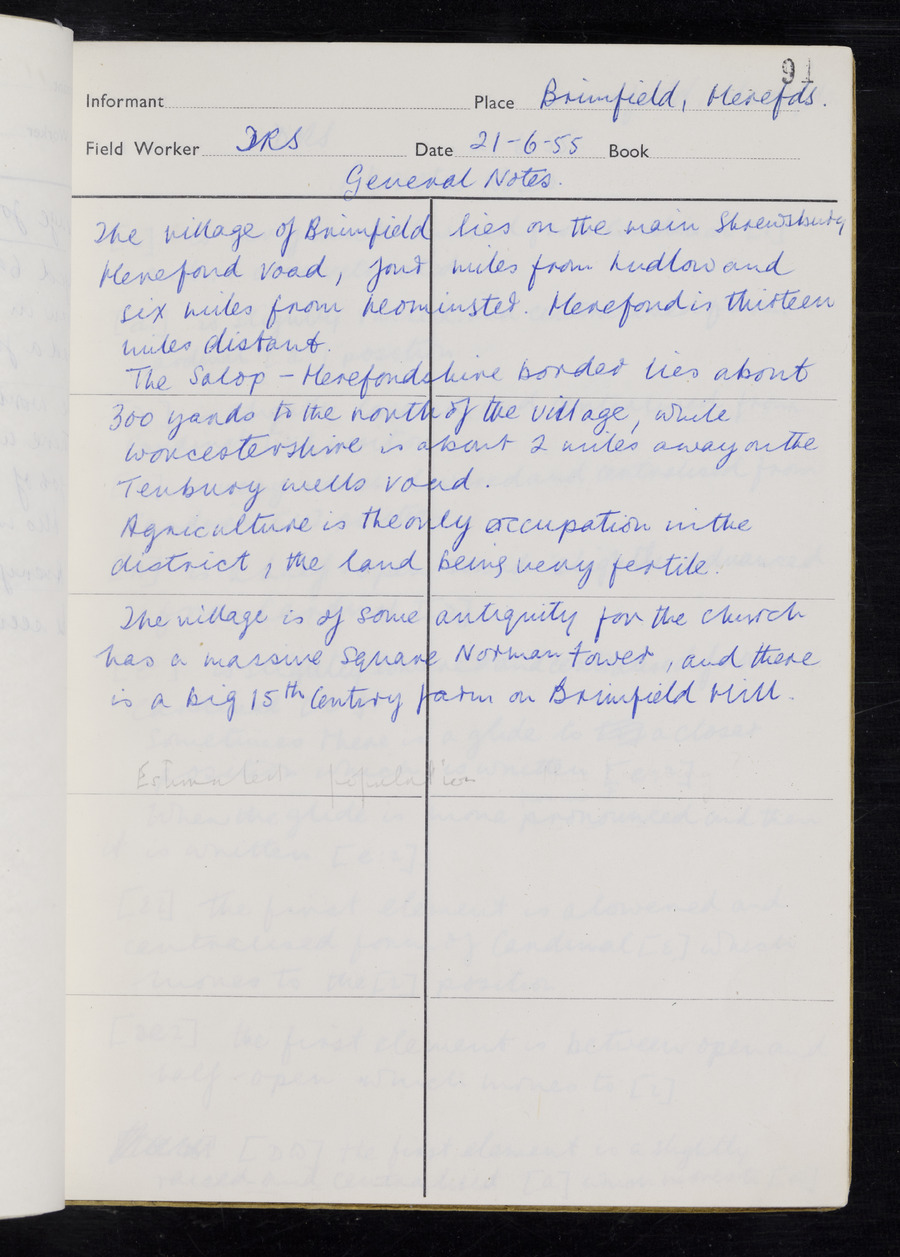 91
Informant Place Brimfield, Herefds.
Field Worker DRS Date 21-6-55 Book
General Notes.
The village of Brimfield lies on the main Shrewsbury
Hereford road, four miles from Ludlow and
six miles from Leominster. Hereford is thirteen
miles distant.
The Salop - Herefordshire border lies about
300 yards to the north of the village, while
Worcestershire is about 2 miles away on the
Tenbury Wells road.
Agriculture is the only occupation in the
district, the land being very fertile.
The village is of some antiquity for the church
has a massive square Norman tower, and there
is a big 15th Century farm on Brimfield Hill.
Estimated population